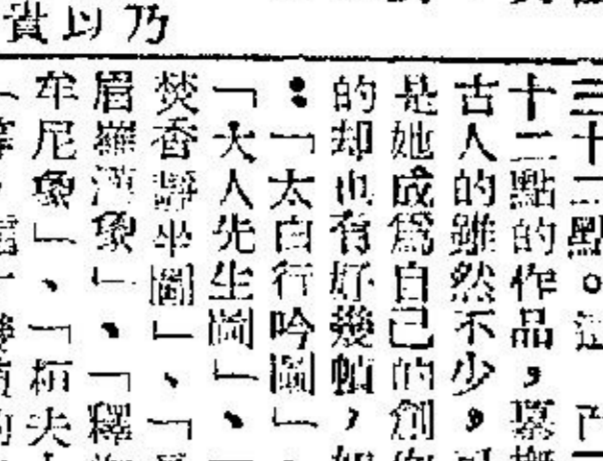 乃以貴
三十二點。這
十二點的作品，摹
古人的雖然不少，
是她成爲自己的創
的却也有好幾幀，如
：「太白行吟圖」、
「大人先生圖」、
焚香靜坐圖」、「
眉羅漢象」、「釋
牟尼象」、「栢夫